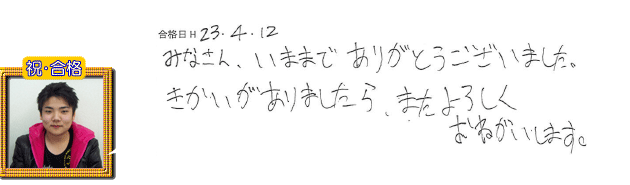 合格日 H 23.4.12
みなさん、いままで ありがとうございました。
きかいがありましたら、またよろしく
おねがいします。
祝・合格